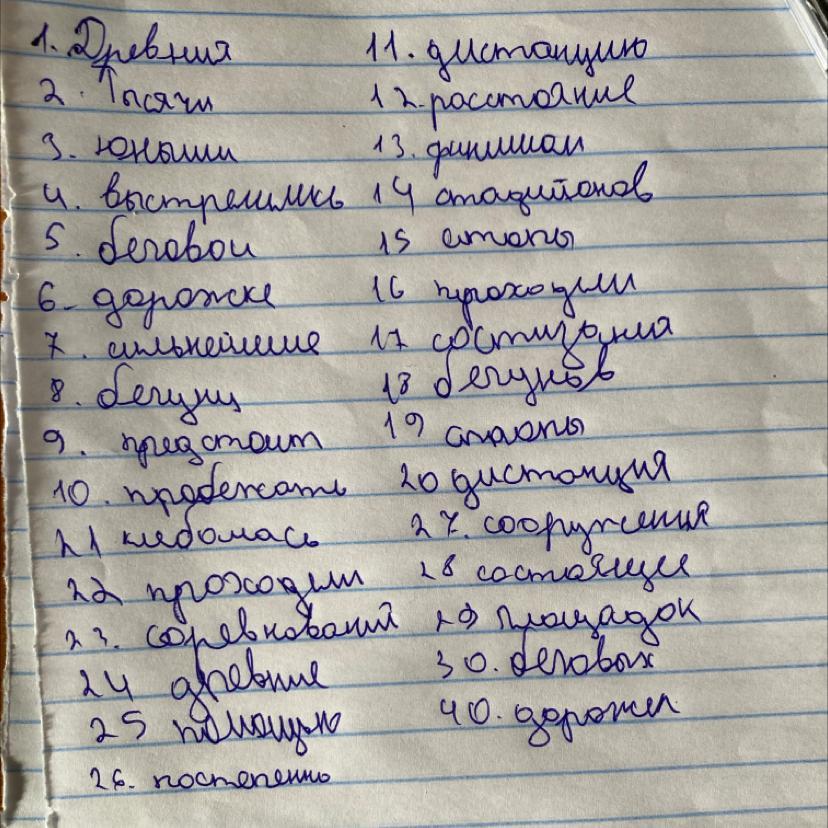 1. Древния
2. Тысячи
3. юными
4. выстрелились
5. беговои
6. дорожке
7. сильнейшие
8. бегуны
9. предстоит
10. пробежать
21 небомась
22 проходили
23. соревнований
24 древние
25 помощью
26. постепенно
11. дистанцию
12. расстояние
13. финишом
14 стадийонов
15 стопы
16 проходили
17 состизания
18 бегунов
19 стопы
20 дистанция
27. сооружения
28 состоящее
29 площадок
30. беговых
40. дорожек